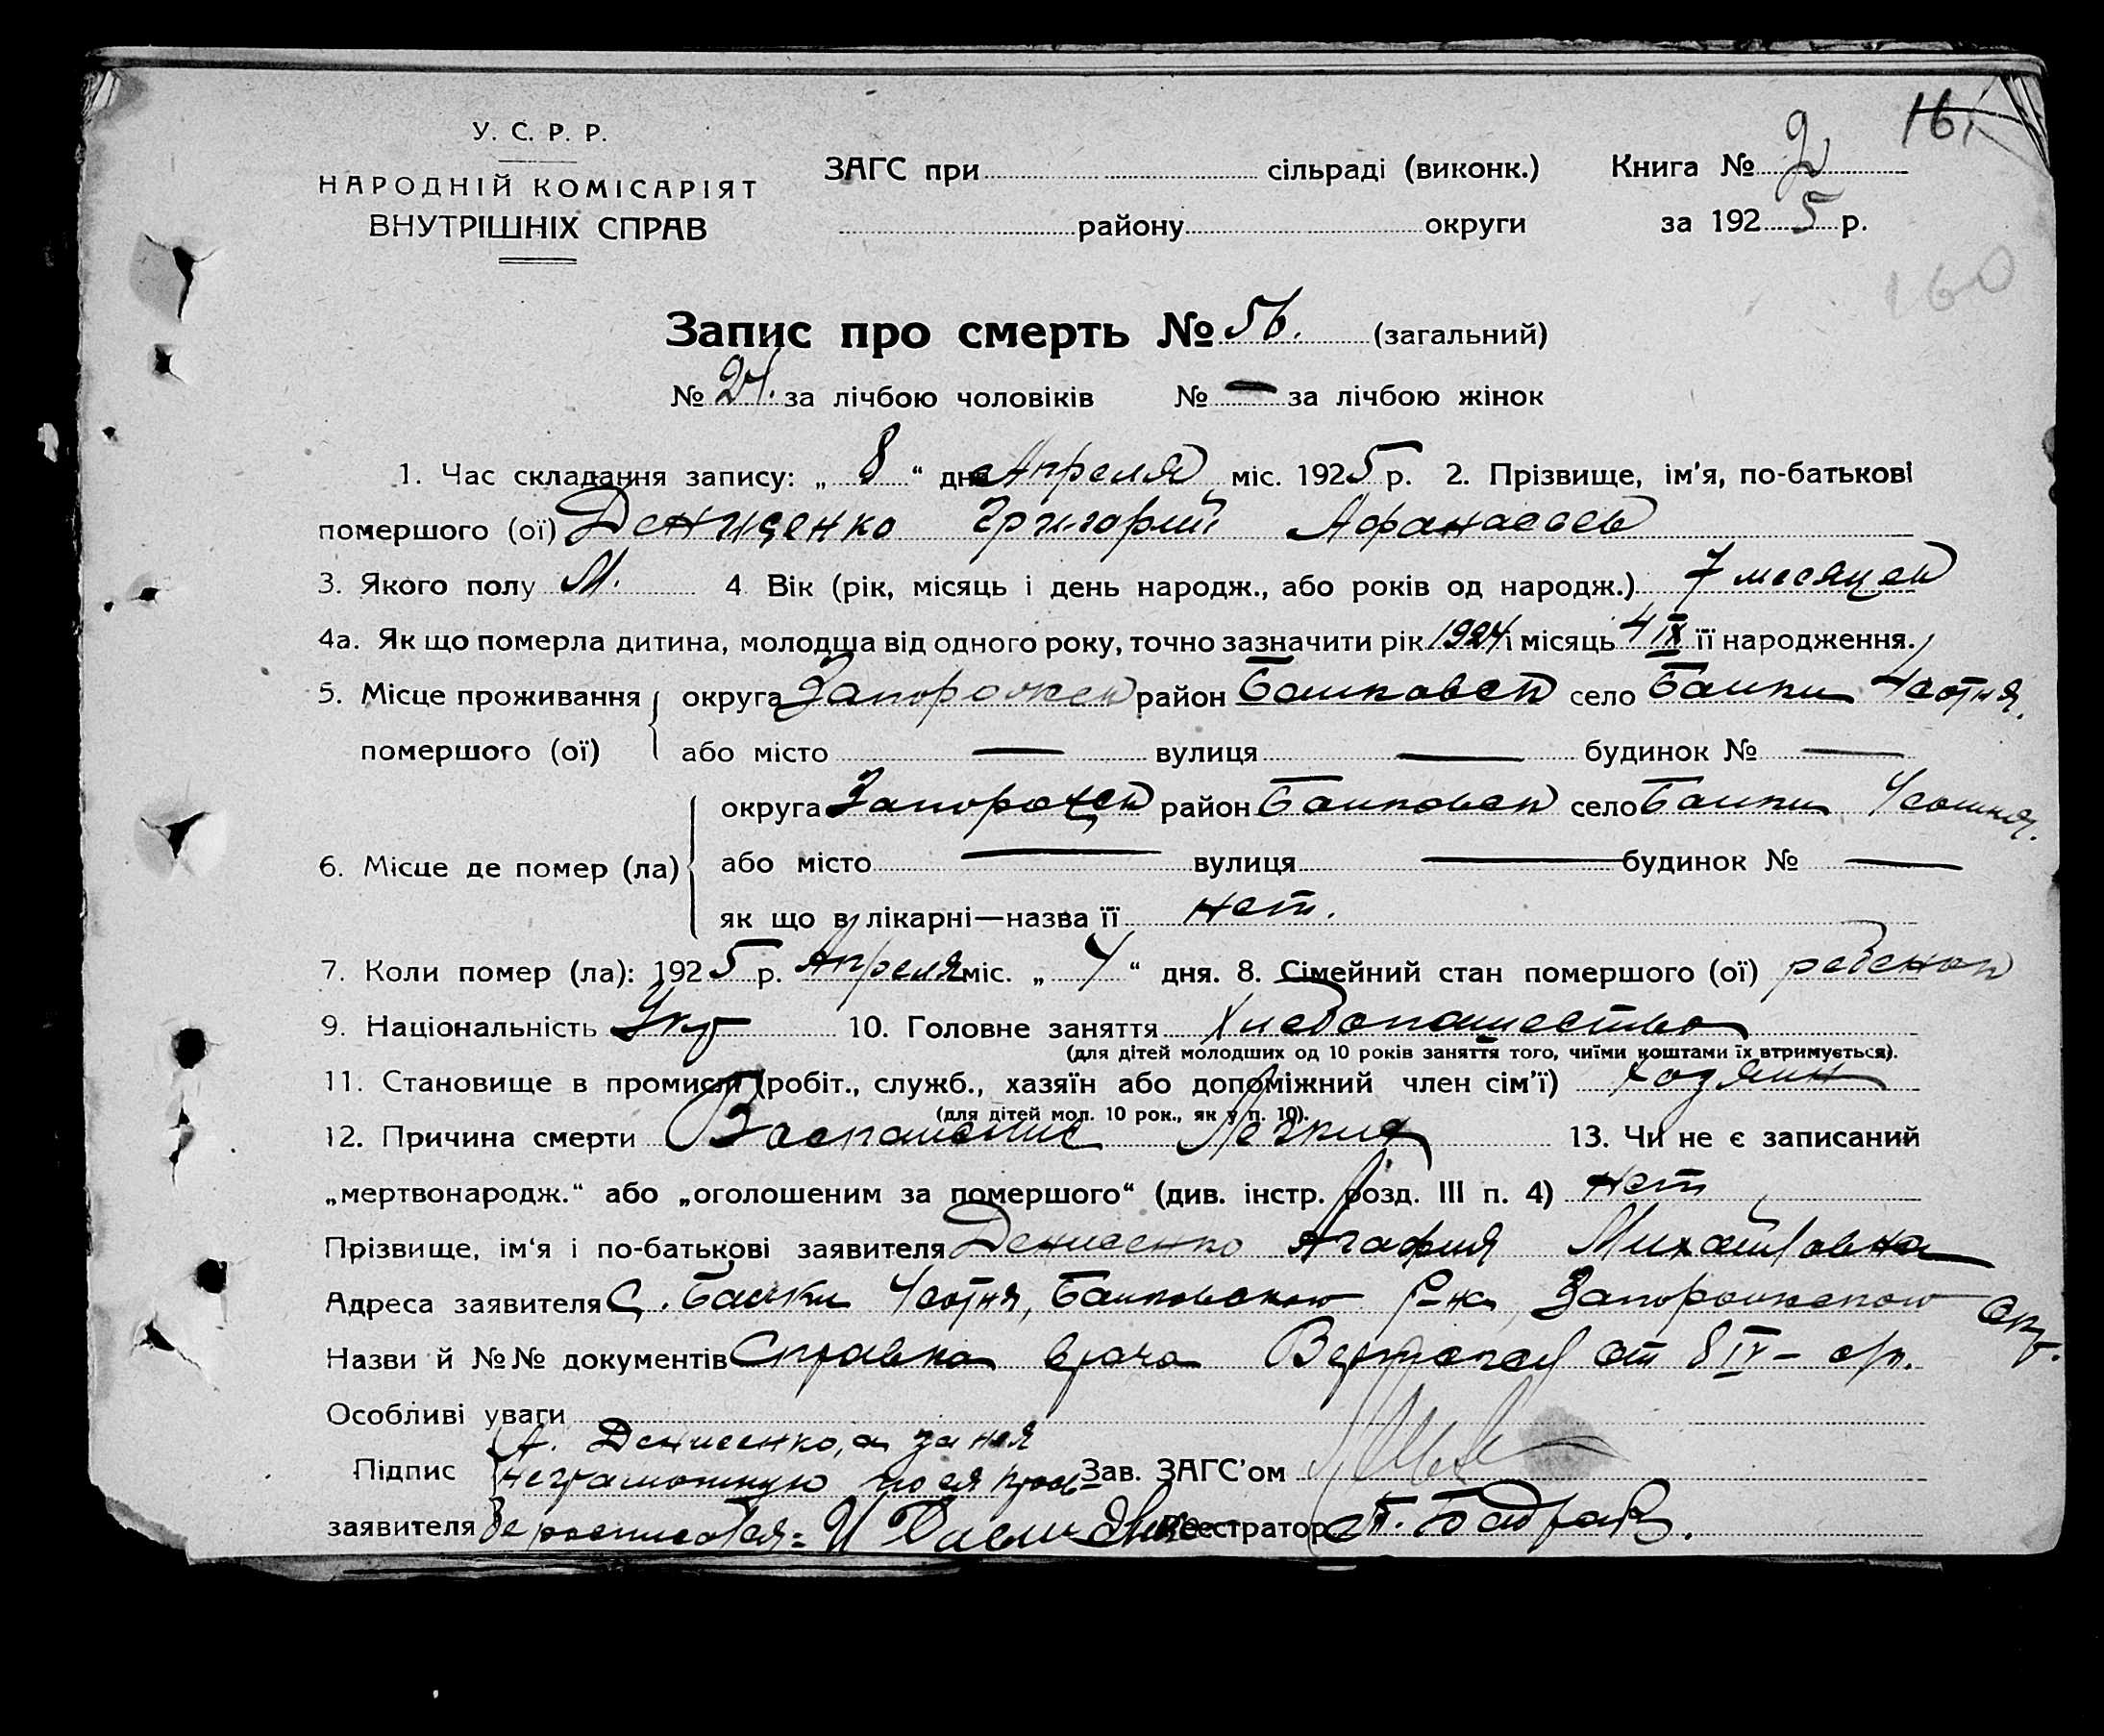 У. С. Р. Р.
НАРОДНІЙ КОМІСАРІЯТ
ВНУТРІШНІХ СПРАВ
ЗАГС при сільраді (виконк.)
району округи
Книга № 2
161
за 1925 р.
160
Запис про смерть № 56. (загальний)
№ 24. за лічбою чоловіків № — за лічбою жінок
1. Час складання запису: „ 8 “ дня Апреля міс. 1925 р. 2. Прізвище, ім'я, по-батькові
помершого (ої) Денисенко Григорий Афанасьев
3. Якого полу М. 4 Вік (рік, місяць і день народж., або років од народж.) 7 месяцев
4а. Як що померла дитина, молодша від одного року, точно зазначити рік 1924 і місяць 4 IX її народження.
5. Місце проживання округа Запорожск район Башковск село Башки
помершого (ої) або місто — вулиця — будинок № —
округа Запорожск район Башковск село Башки
6. Місце де помер (ла) або місто — вулиця — будинок № —
як що в лікарні—назва її нет.
7. Коли помер (ла): 1925 р. Апреля міс. „ 4 “ дня. 8. Сімейний стан помершого (ої) ребенок
9. Національність Укр 10. Головне заняття Хлебопашество
(для дітей молодших од 10 років заняття того, чиїми коштами їх втримується).
11. Становище в промислі (робіт., служб., хазяїн або допоміжний член сім'ї) хозяин
(для дітей мол. 10 рок., як у п. 10).
12. Причина смерти Воспаление Легких 13. Чи не є записаний
„мертвонародж.“ або „оголошеним за помершого“ (див. інстр. розд. III п. 4) нет
Прізвище, ім'я і по-батькові заявителя Денисенко Агафия Михайловна
Адреса заявителя С. Башки Башковского Р-на, Запорожского окр.
Назви й №№ документів Справка врача от 8 IV – с/г.
Особливі уваги
А. Денисенко, а за нея
Підпис неграмотную по ея прось- Зав. ЗАГС'ом
заявителя бе росписался: И Реєстратор